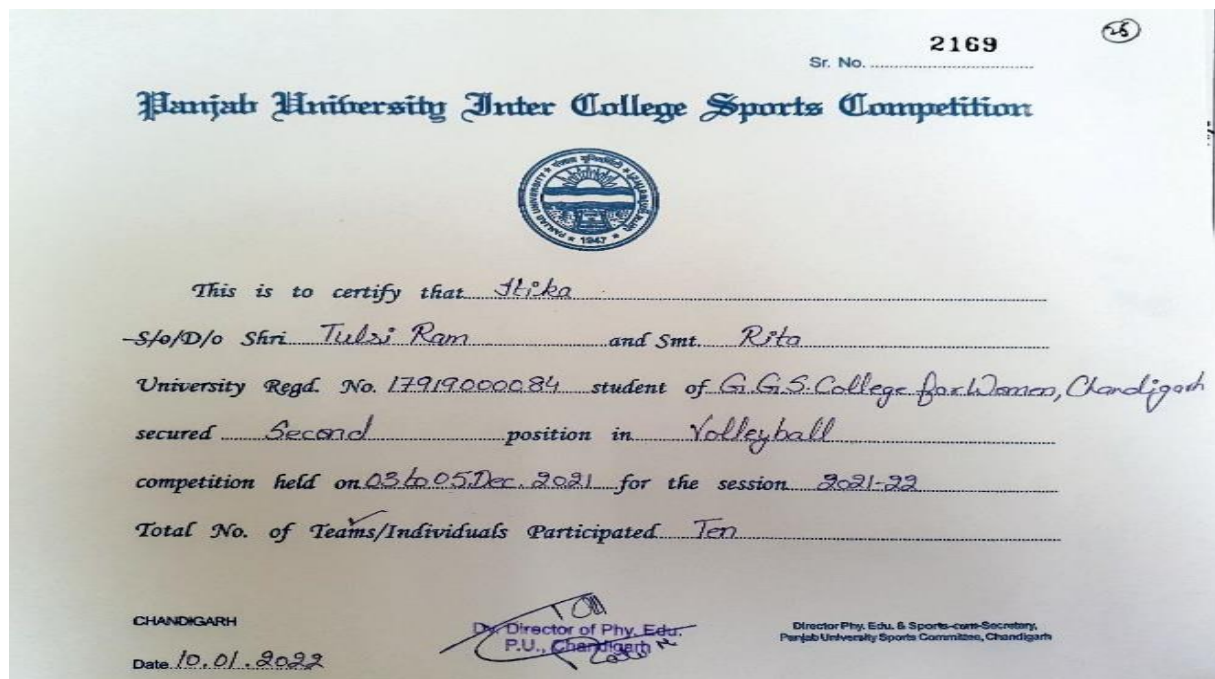 2169
25
Sr. No.
Panjab University Inter College Sports Competition
PANJAB UNIVERSITY
1947
This is to certify that Itika
S/o/D/o Shri Tulsi Ram and Smt. Rita
University Regd. No. 17919000084 student of G.G.S. College for Women, Chandigarh
secured Second position in Volleyball
competition held on 03 to 05 Dec. 2021 for the session 2021-22
Total No. of Teams/Individuals Participated Ten
CHANDIGARH
Date 10.01.2022
Dy. Director of Phy. Edu.
P.U., Chandigarh
Director Phy. Edu. & Sports-cum-Secretary,
Panjab University Sports Committee, Chandigarh